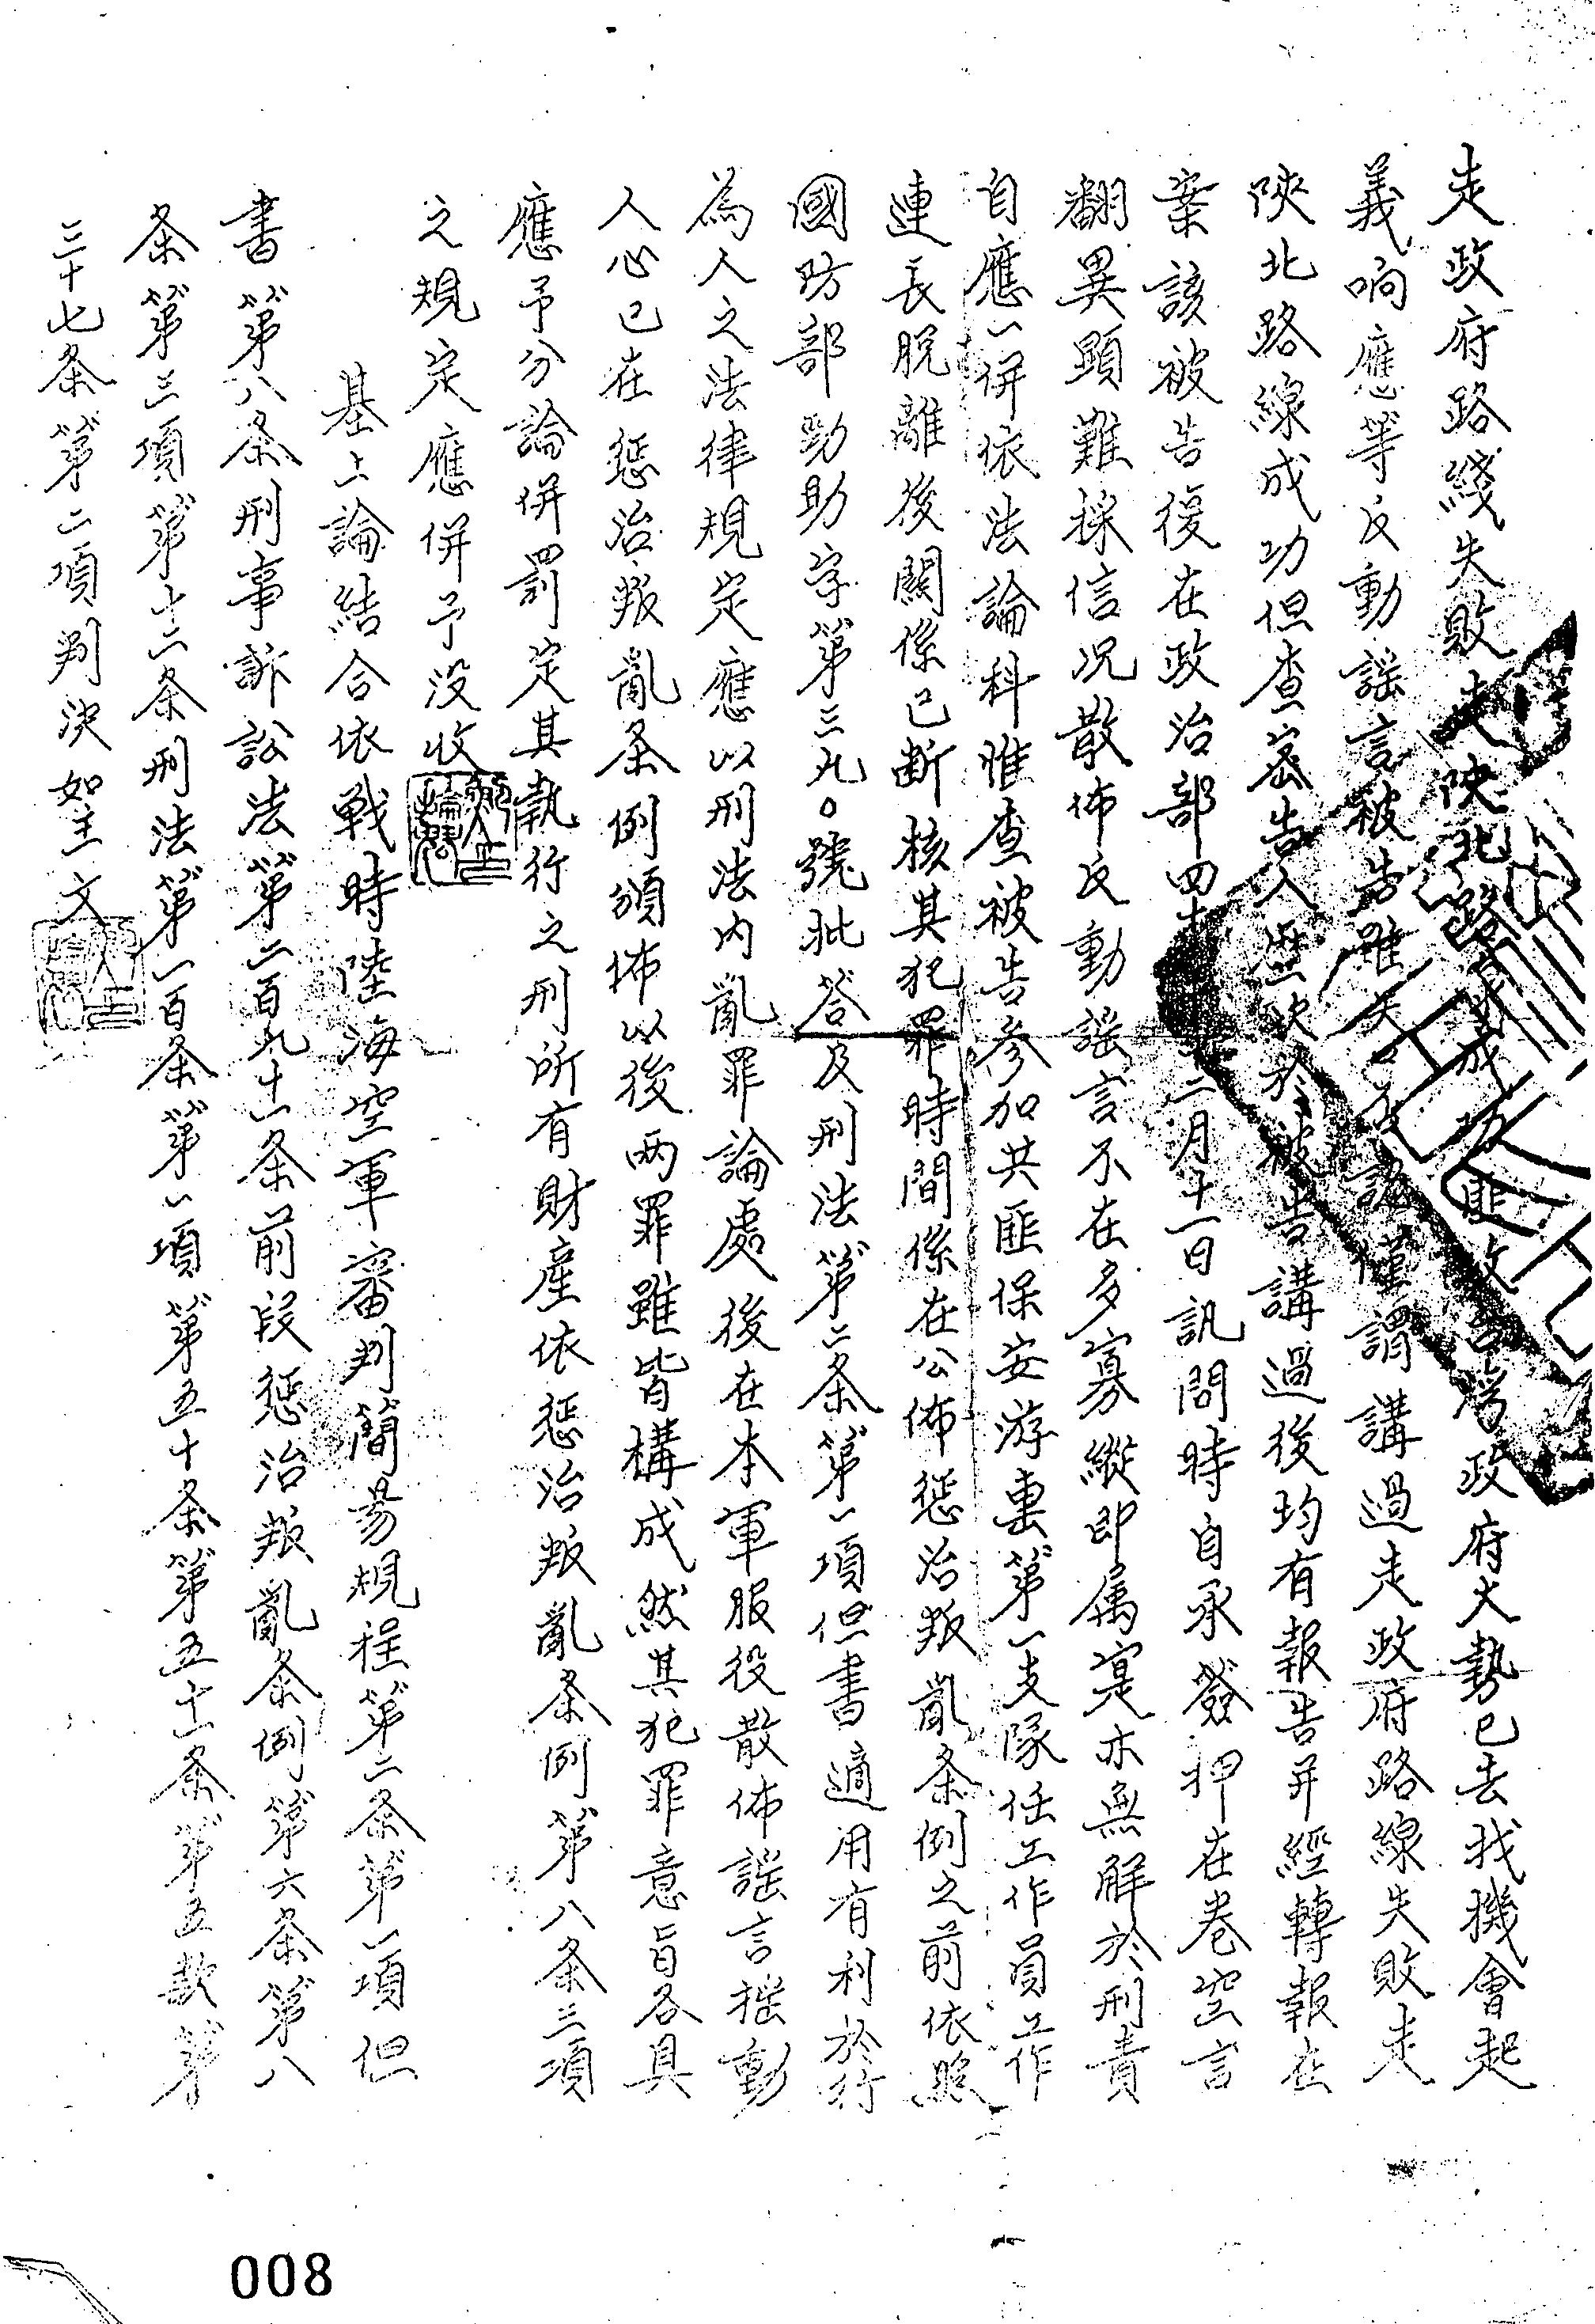 走政府路綫失敗走陝北路線成功匪攻台灣政府大勢已去找機會起
義响應等反動謠言被告雖矢口否認僅謂講過走政府路線失敗走
陝北路線成功但查密告人歷次於被告講過後均有報告并經轉報在
案該被告復在政治部四十年二月十一日訊問時自承簽押在卷空言
翻異顕難採信况散佈反動謠言不在多寡縱即属寔亦無解於刑責
自應一併依法論科惟查被告參加共匪保安游擊第一支隊任工作員工作
連長脫離後関係已断核其犯罪時間係在公佈惩治叛亂条例之前依照
國防部勁助字第三九〇號批答及刑法第二条第一項但書適用有利於行
為人之法律規定應以刑法内亂罪論處後在本軍服役散佈謠言揺動
人心已在惩治叛亂条例頒佈以後两罪雖皆構成然其犯罪意旨各具
應予分論併罰定其執行之刑所有財產依惩治叛亂条例第八条三項
之規定應併予没收
基上論結合依戦時陸海空軍審判簡昜規程第二条第一項但
書第八条刑事訴訟法第二百九十一条前段惩治叛亂条例第六条第八
条第三項第十二条刑法第一百条第一項第五十条第五十一条第五款第
三十七条第二項判决如主文
008